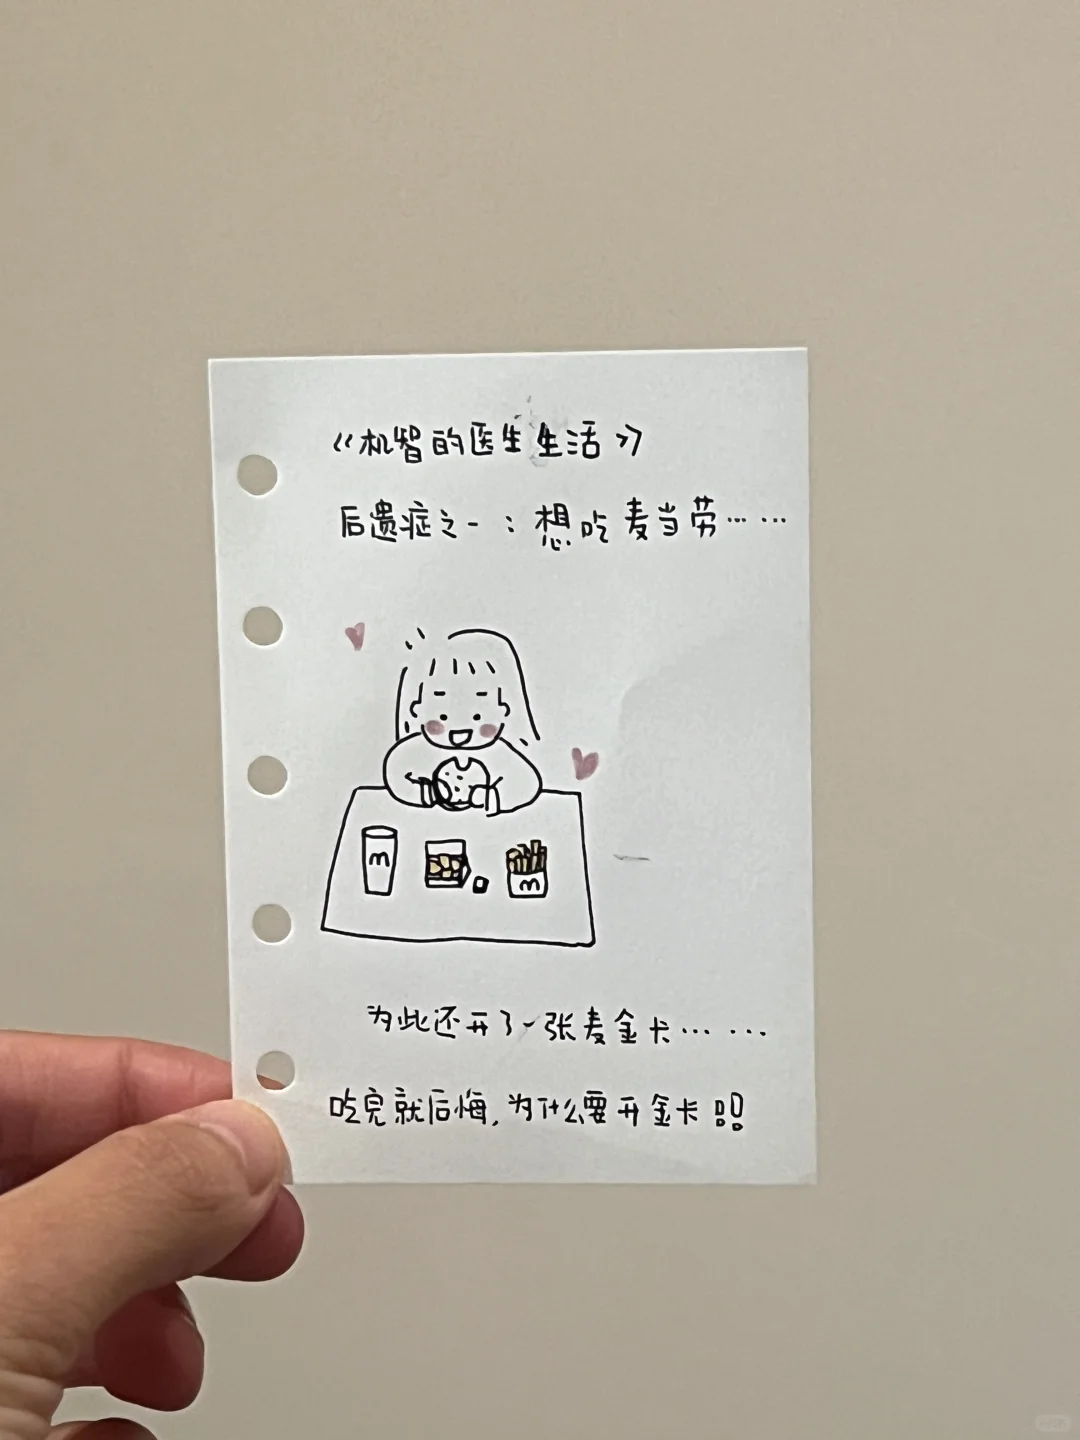 《机智的医生生活》
后遗症之一：想吃麦当劳……
m
m
为此还开了一张麦金卡……
吃完就后悔,为什么要开金卡!!